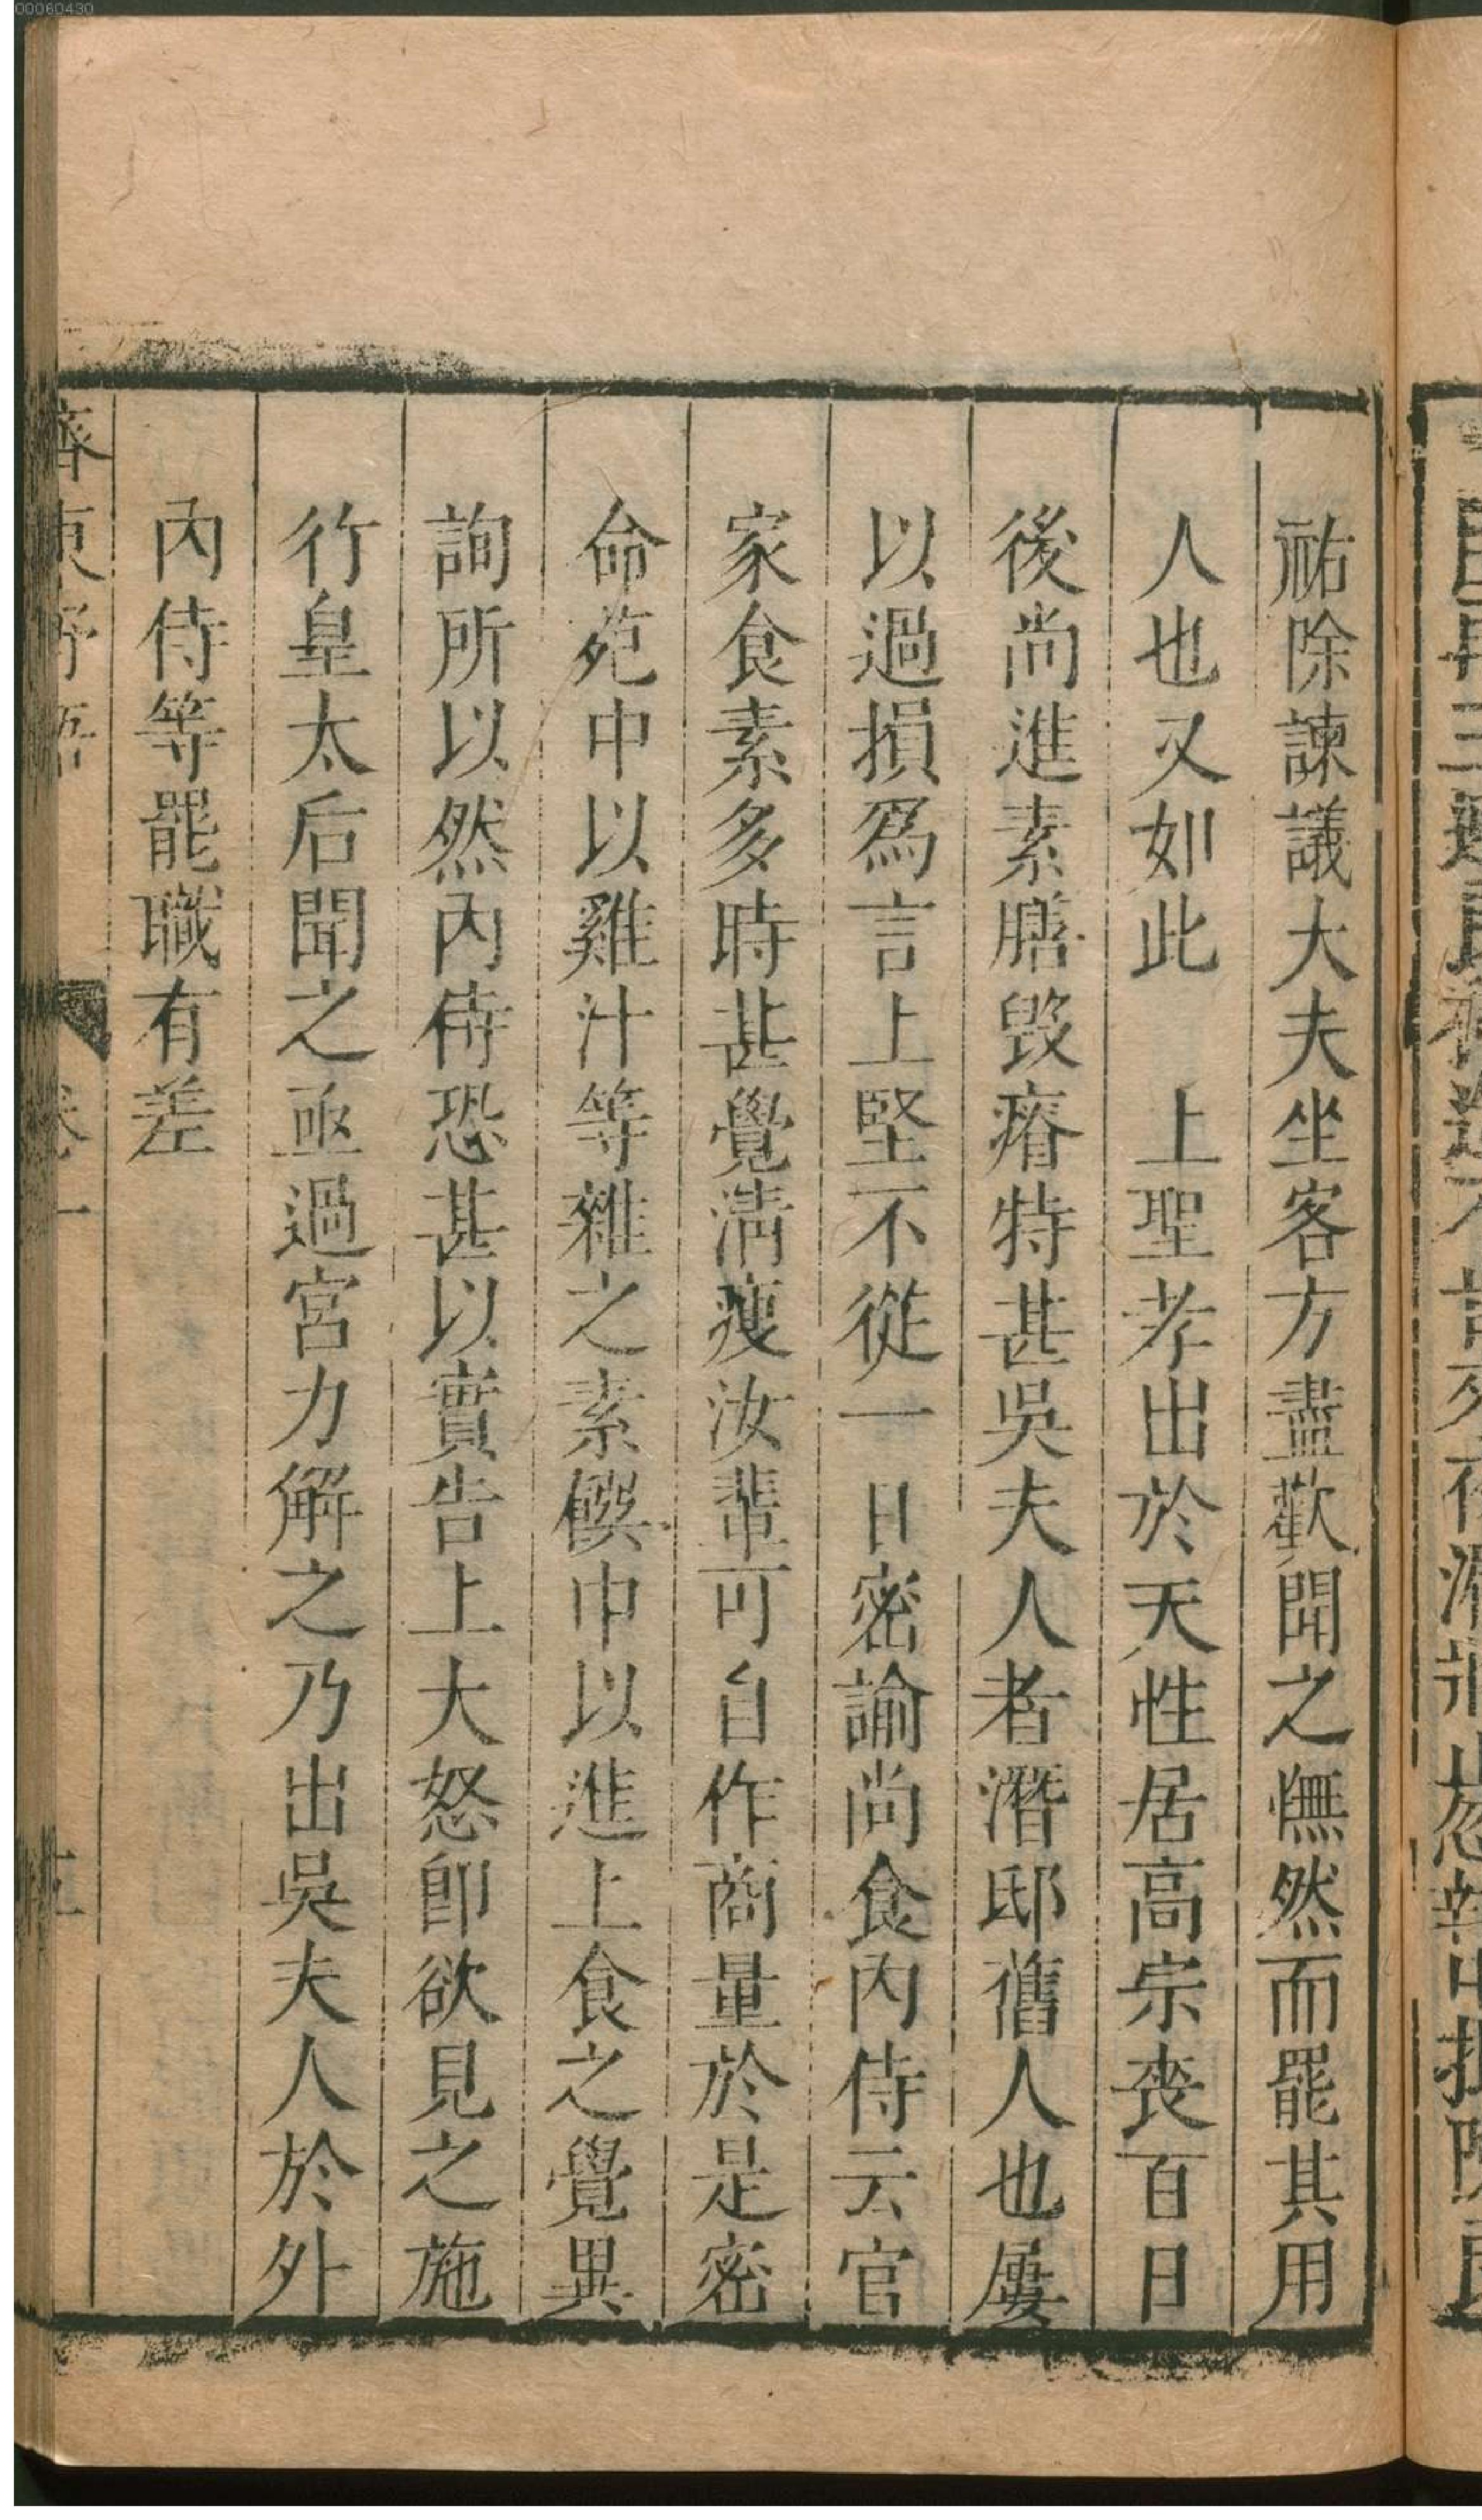 祐除諫議大夫坐客方盡歡聞之憮然而罷其用
人也又如此　上聖孝出於天性居高宗喪百日
後尚進素膳毀瘠特甚吳夫人者潛邸舊人也屢
以過損爲言上堅不從一日密諭尚食內侍云官
家食素多時甚覺淸瘦汝輩可自作商量於是密
命苑中以雞汁等雜之素饌中以進上食之覺異
詢所以然內侍恐甚以實告上大怒卽欲見之施
行皇太后聞之亟過宮力解之乃出吳夫人於外
內侍等罷職有差
齊東野語　卷一
00060430